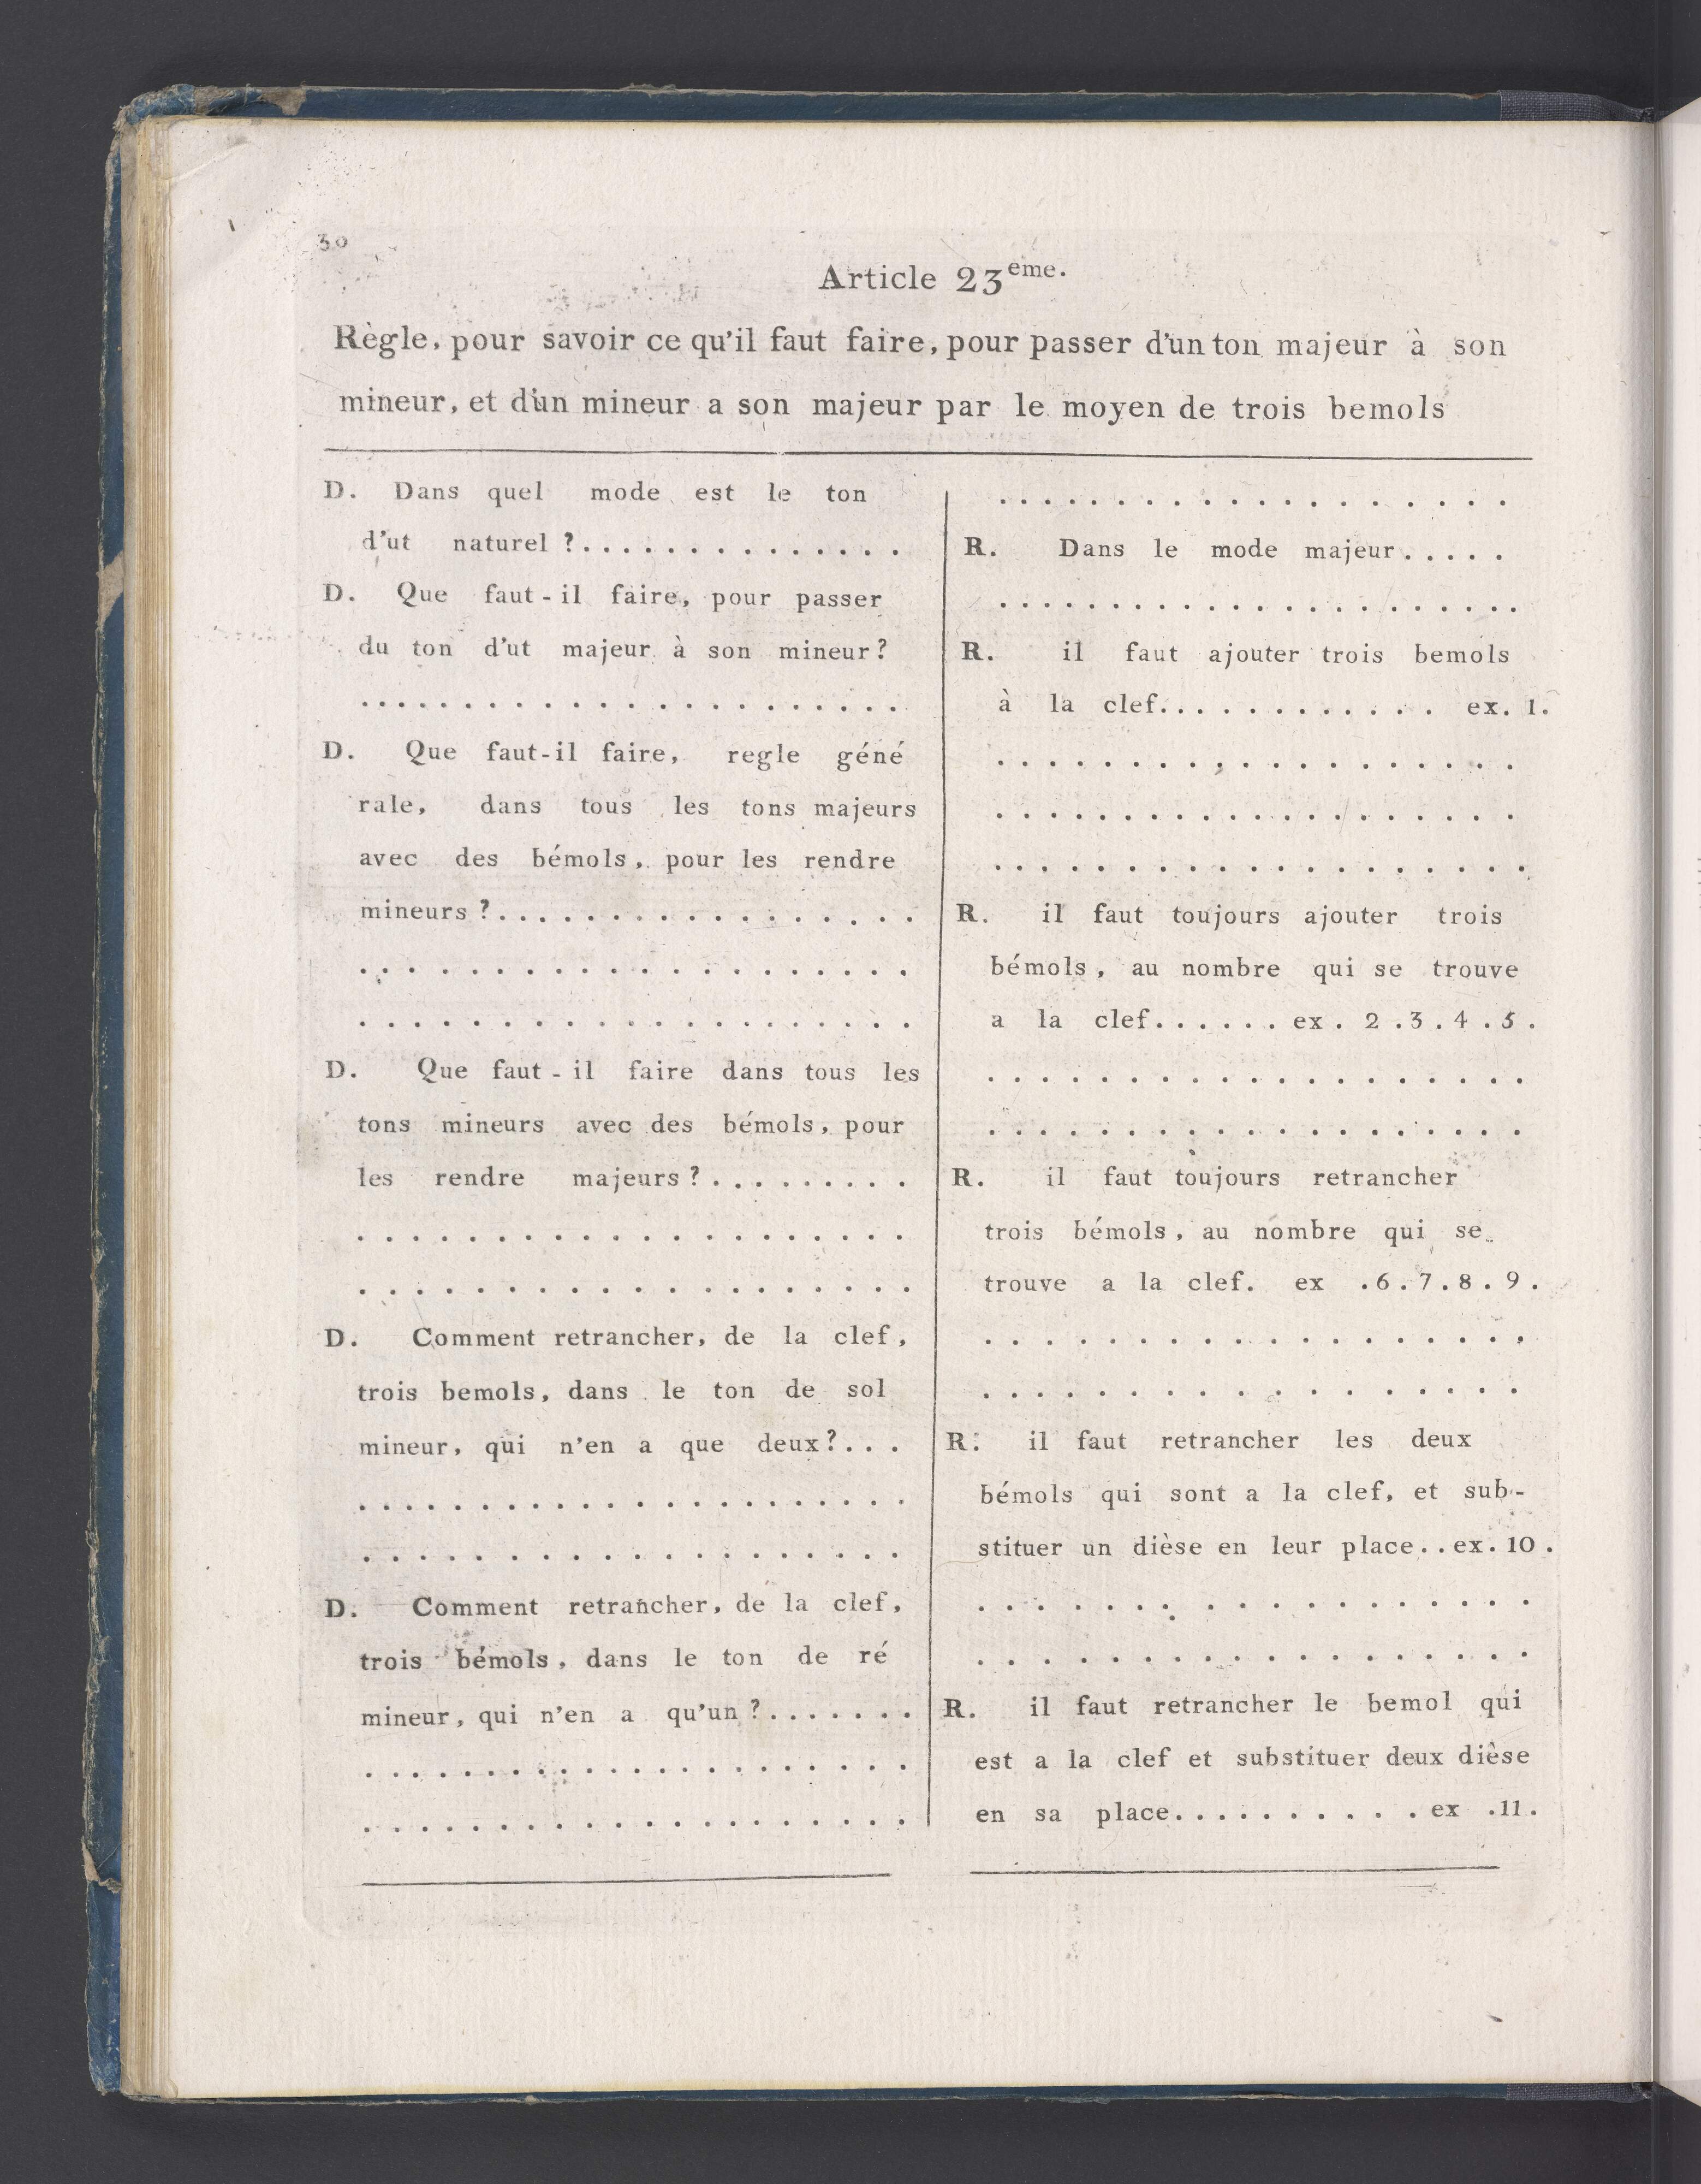 30
Article 23eme.
Règle, pour savoir ce qu'il faut faire, pour passer d'un ton majeur à son
mineur, et d'un mineur a son majeur par le moyen de trois bemols
D. Dans quel mode est le ton
d'ut naturel ?..............
D. Que faut-il faire, pour passer
du ton d'ut majeur à son mineur?
........................
D. Que faut-il faire, regle géné
rale, dans tous les tons majeurs
avec des bémols, pour les rendre
mineurs ?.................
.....................
.....................
D. Que faut-il faire dans tous les
tons mineurs avec des bémols, pour
les rendre majeurs ?.........
.....................
.....................
D. Comment retrancher, de la clef,
trois bemols, dans le ton de sol
mineur, qui n'en a que deux?...
.....................
.....................
D. Comment retrancher, de la clef,
trois bémols, dans le ton de ré
mineur, qui n'en a qu'un ?.......
.....................
.....................
....................
R. Dans le mode majeur.....
.....................
R. il faut ajouter trois bemols
à la clef............ ex. 1.
....................
....................
....................
R. il faut toujours ajouter trois
bémols, au nombre qui se trouve
a la clef...... ex. 2.3.4.5.
....................
....................
R. il faut toujours retrancher
trois bémols, au nombre qui se
trouve a la clef. ex .6.7.8.9.
....................
....................
R. il faut retrancher les deux
bémols qui sont a la clef, et sub-
stituer un dièse en leur place..ex.10.
....................
....................
R. il faut retrancher le bemol qui
est a la clef et substituer deux dièse
en sa place.......... ex .11.